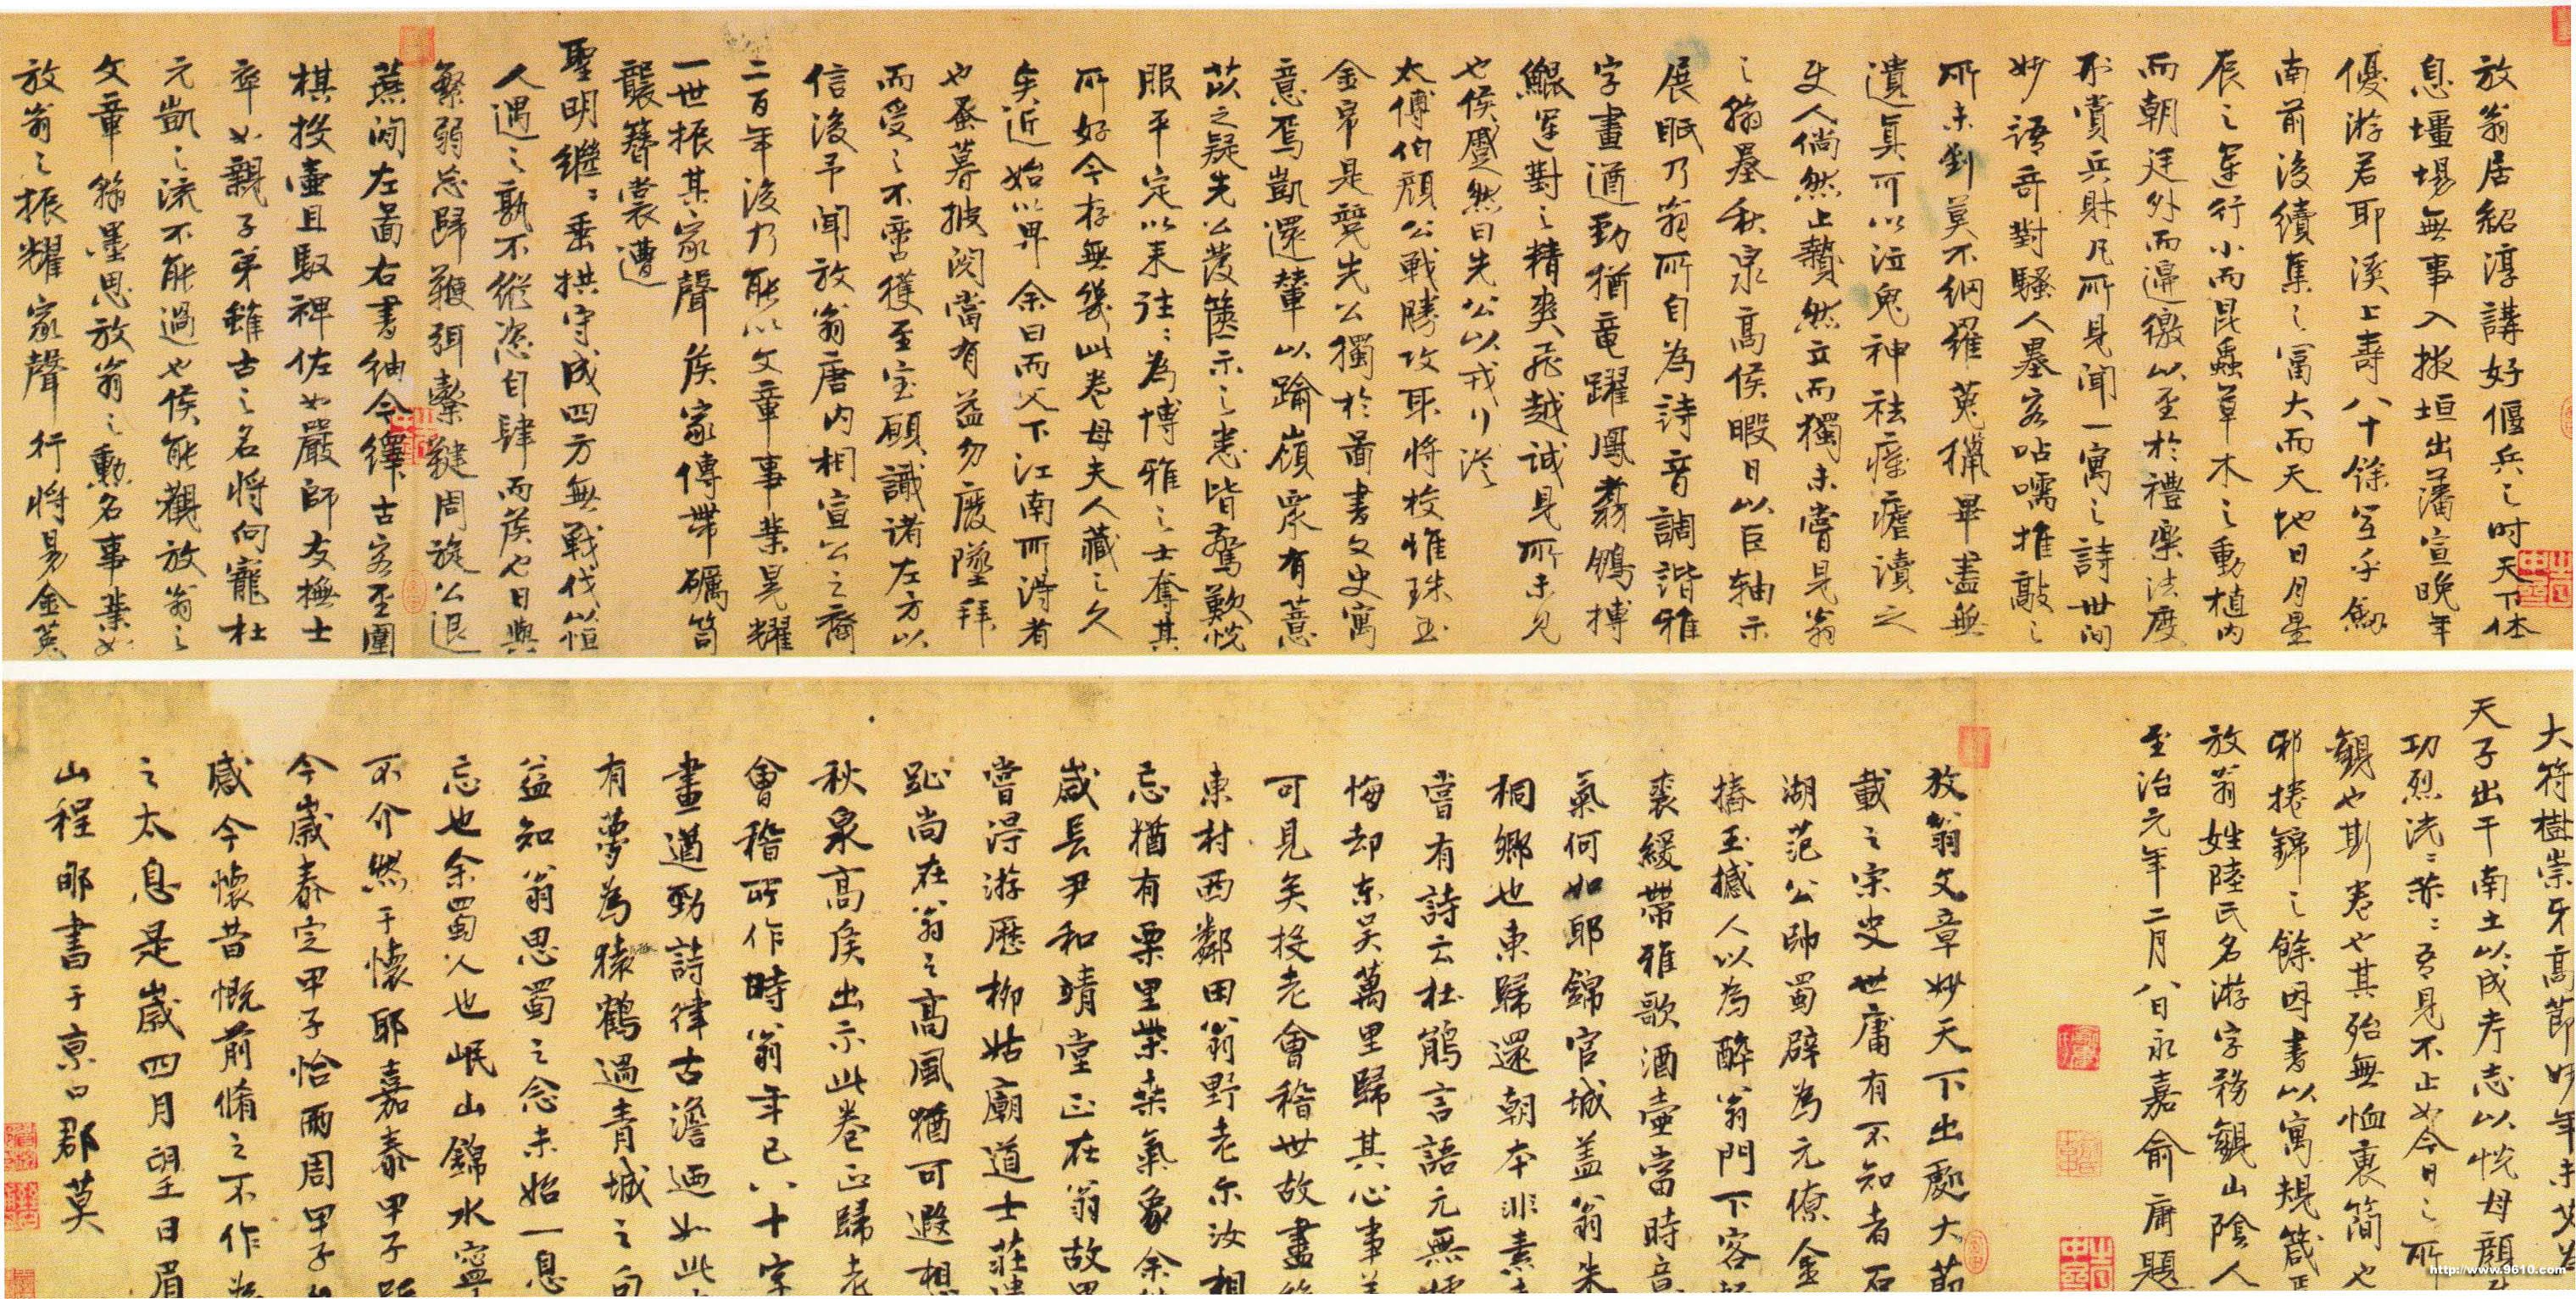 放翁居紹淳講好偃兵之時天下休
息壃埸無事入掖垣出藩宣晚年
優游君耶溪上壽八十餘至乎
南前後續集之富大而天地日月星
辰之運行小而昆蟲草木之動植内
而朝廷外而邊徼以至於禮樂法度
形賞兵財凡所見聞一寓之詩世间
妙語奇對騷人墨客呫嚅推敲之
所未到莫不綱羅蒐獵畢盡無
遺真可以泣鬼神祛瘧癘讀之
使人倘然止贄然立而獨未嘗見翁
之翰墨秋泉高侯暇日以巨轴示
展眂乃翁所自為詩音調諧雅
字畫遒勁猶竜躍鳳翥鵬摶
鯤運對之精爽飛越誠見所未見
也侯蹙然曰先公以戎行從
太傅伯顔公戰勝攻取将校惟珠玉
金帛是競先公獨於啚書文史寓
意焉凱還輦以踰嶺眾有薏
苡之疑先公發篋示之悉皆驚歎悦
服平定以来往〻為博雅之士奪其
所好今存無幾此卷母夫人藏之久
矣近始以畀余曰而父下江南所得者
也蚤暮披阅當有益勿廢墜拜
而受之不啻獲至宝願識诸左方以
信後予聞放翁唐内相宣公之裔
二百年後乃能以文章事業晃耀
一世振其家聲侯家傳带礪笥
襲簪裳遭
聖明繼〻垂拱守成四方無戰伐以恒
人遇之孰不縱恣自肆而侯也日與
繁弱忘歸鞭弭櫜鞬周旋公退
燕閒左啚右書紬今繹古客至圍
棋投壷且馭裨佐如嚴師友撫士
卒如親子弟雖古之名将何寵杜
元凱之流不能過也侯能觀放翁之
文章翰墨思放翁之勳名事業如
放翁之振耀家聲行将易金莵
大符樹崇牙髙節妙年未艾為
天子出干南土以成考志以悦母顔
功烈洸〻赫〻吾見不止如今日之所
觀也斯卷也其殆無恤衷簡也
耶捲錦之餘因書以寓規箴焉
放翁姓陸氏名游字務觀山陰人
至治元年二月八日永嘉俞庸題
放翁文章妙天下出處大莭
載之宋史世庸有不知者石
湖范公帥蜀辟為元僚金
樁玉撼人以為醉翁門下客
裘緩帶雅歌酒壷當時音
氣何如耶錦官城盖翁朱
桐鄉也東歸還朝本非素
嘗有詩云杜鵑言語元無
悔却东吴萬里歸其心事
可見矣投老會稽世故盡
東村西鄰田翁野老尔汝相
忘猶有栗里柴桑氣象余
歲長尹和靖堂正在翁故里
嘗淂游歷栁姑廟道士莊
跡尚在翁之髙風猶可遐想
秋泉髙侯出示此卷正歸老
會稽所作時翁年已八十字
畫遒勁詩律古澹迺如此
有夢為猿鶴過青城之句
益知翁思蜀之念未始一息
忘也余蜀人也岷山錦水寧
不介然于懷耶嘉泰甲子距
今歲泰定甲子恰两周甲子
感今懷昔慨前脩之不作
之太息是歲四月望日眉
山程郇書于京口郡莫
http://www.9610.com